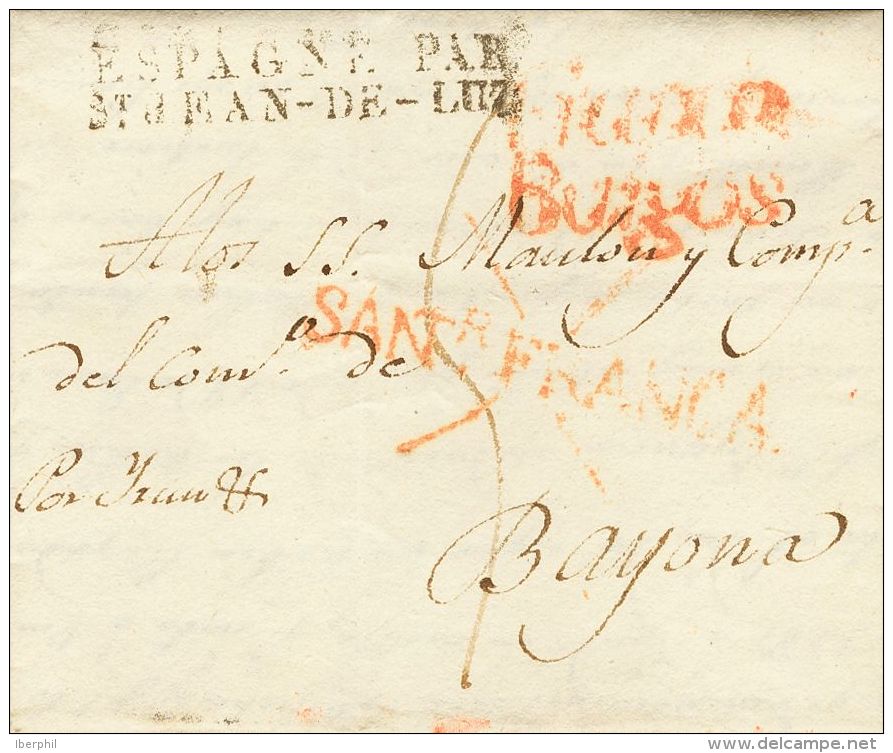 ESPAGNE PAR
ST JEAN-DE-LUZ
Burgos
Alos SS. Maulon y Comp.a
SAN.R FRANCA.
del Com.o de
Por Yrun &
Bayona
Iberphil
www.delcampe.net